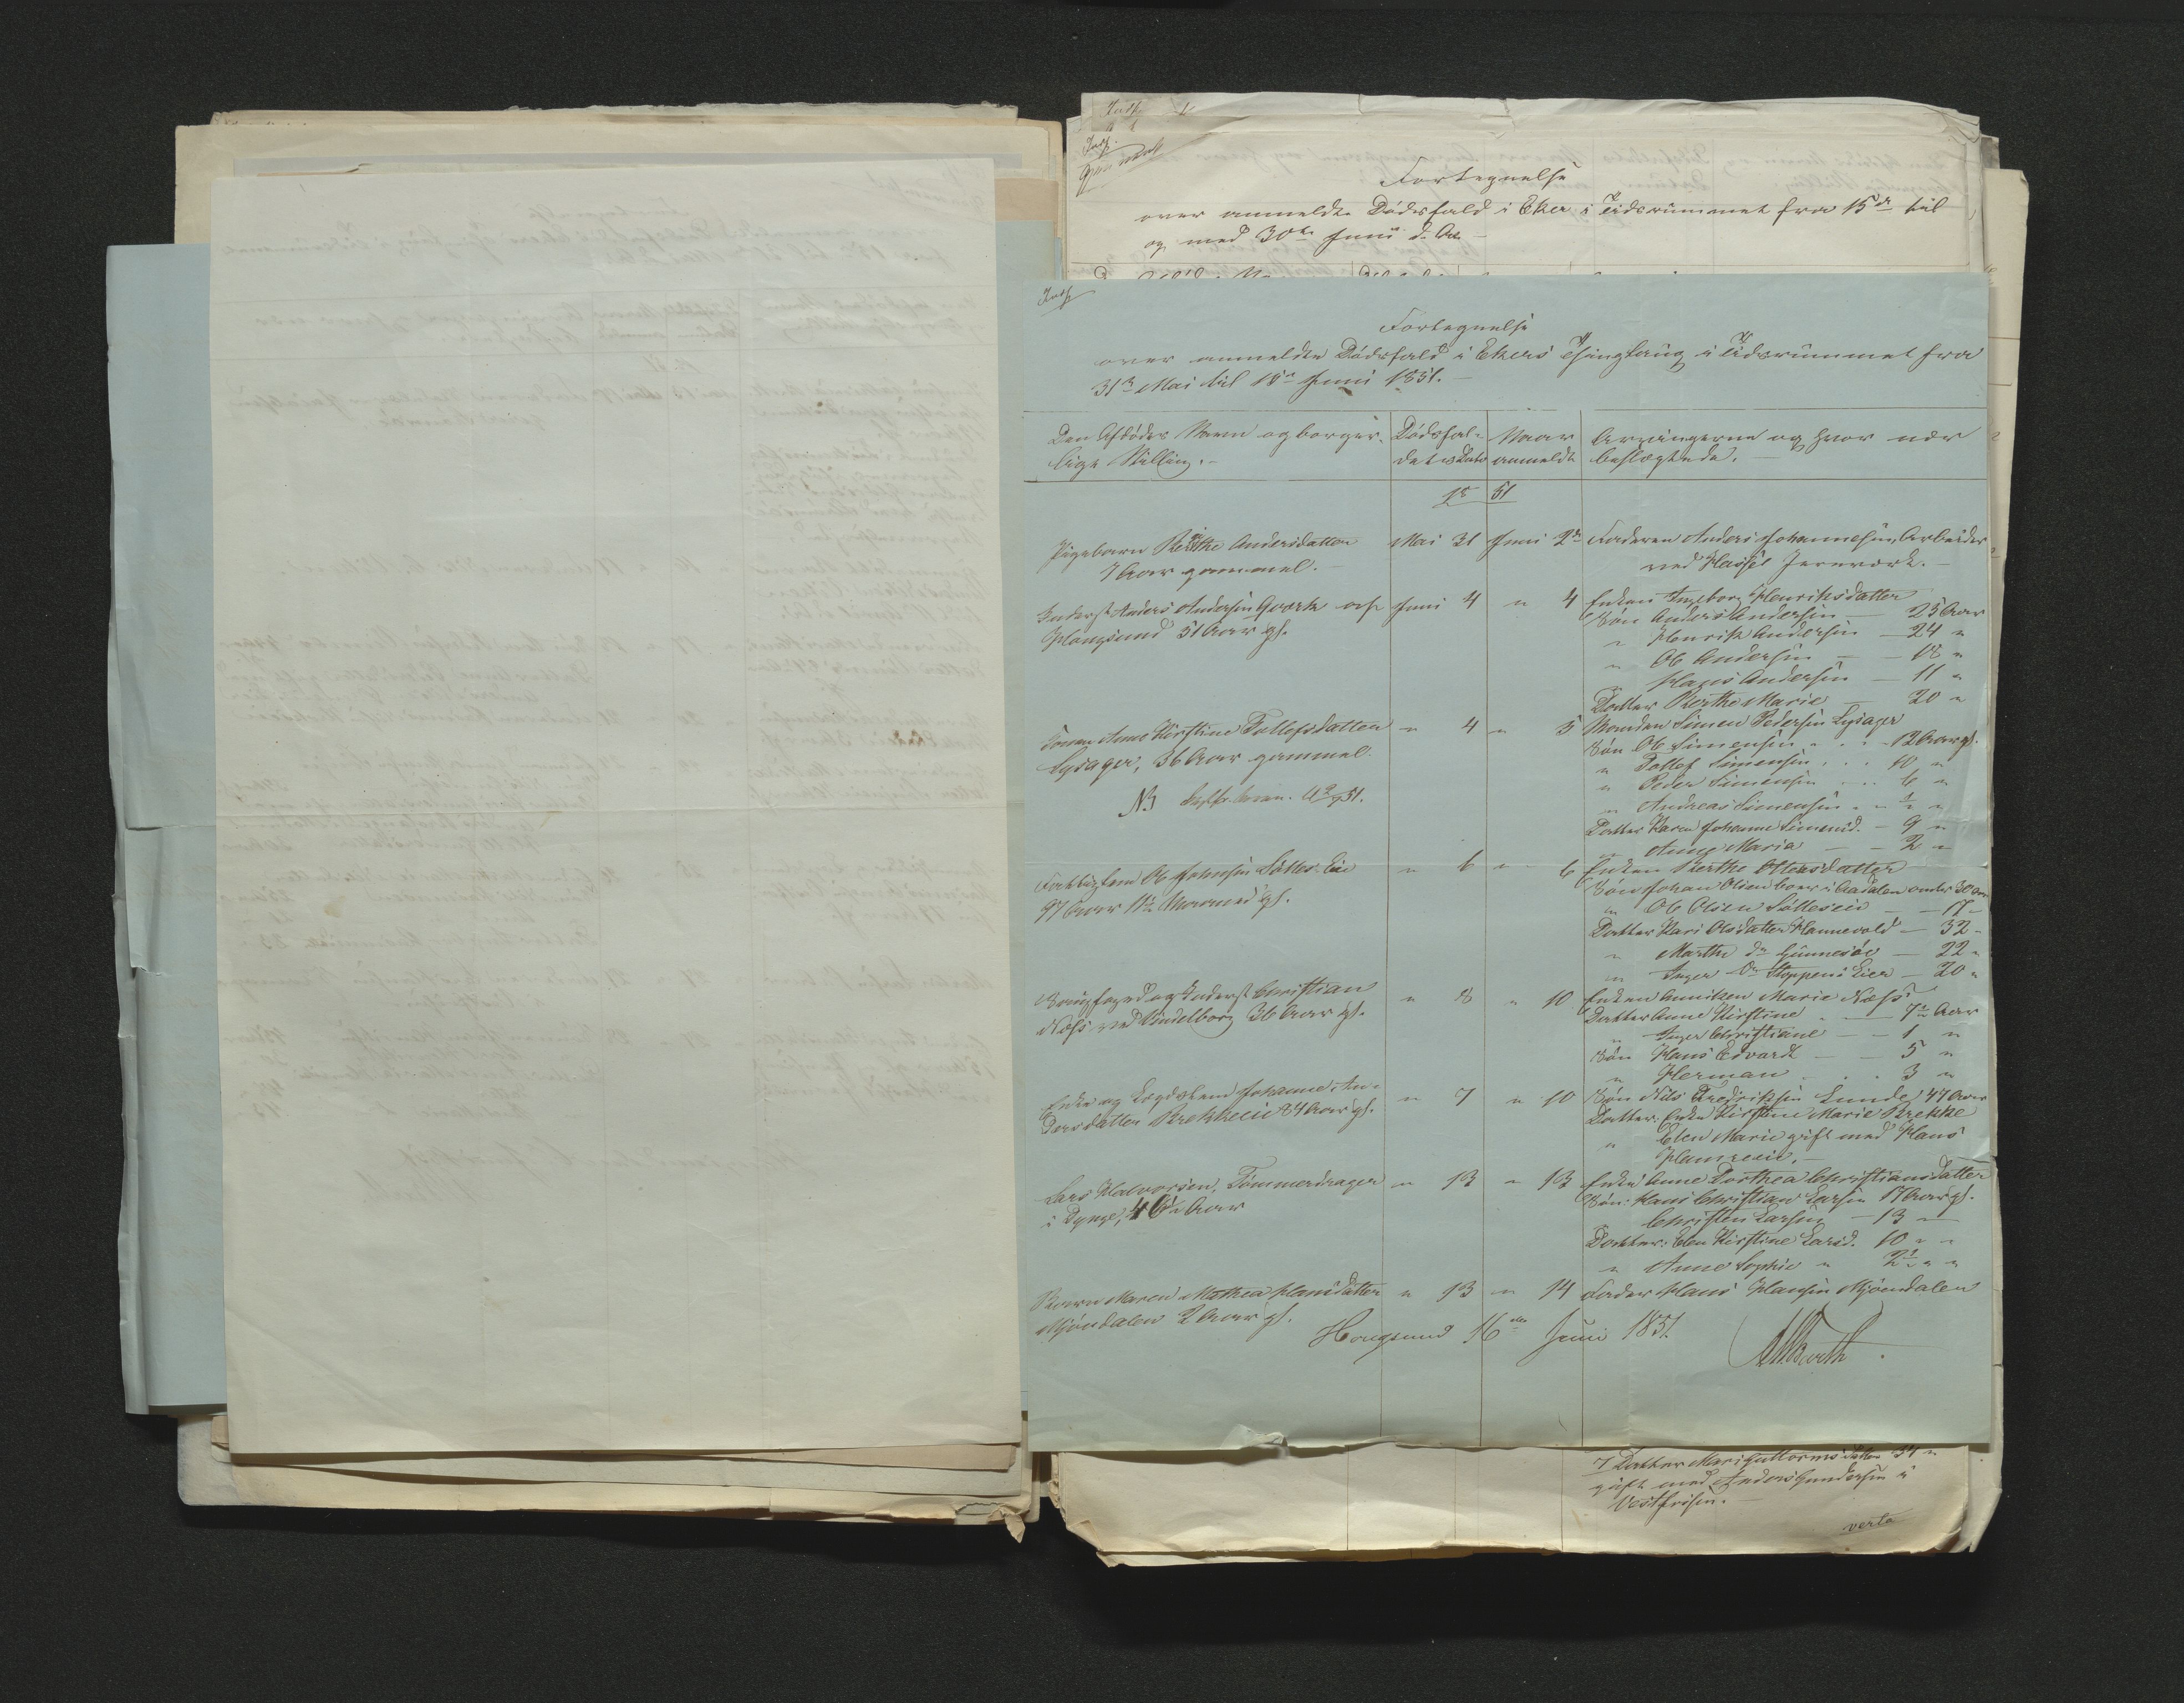 Fortegnelse
over anmeldte Dødsfald i Eker i Tidsrummet fra 15de til
og med 30te Juni d. A.
Fortegnelse
over anmeldte Dødsfald i Ekers Thinglaug i Tidsrummet fra
31te Mai til 15de Juni 1851.
Den Afdødes Navn og borger-
lige Stilling.
Dødsfal-
dets Dato
Naar
anmeldt
Arvingerne og hvor nær
beslægtede.
18 51
Pigebarn Berthe Andersdatter
7 Aar gammel.
Mai 31 Juni 2den
Faderen Anders Johannesen, Arbeider
ved Hassel Jernværk.
Inderst Anders Andersen
Hougsund 51 Aar gl.
Juni 4 " 4
Enken Ingeborg Henriksdatter
Søn Anders Andersen 25 Aar
" Henrik Andersen 24 "
" Ole Andersen 18 "
" Hans Andersen 11 "
Datter Berthe Marie 20 "
Konen Anne Kirstine Tollefsdatter
Lysager, 36 Aar gammel.
" 4 " 5
Manden Simen Pedersen Lysager
Søn Ole Simensen 12 Aar gl.
" Tollef Simensen 10 "
" Peder Simensen 6 "
" Andreas Simensen ½ "
Datter Karen Johanne Simensd. 9 "
" Anne Maria 2 "
Fattiglem Ole Johnsen Sølles Eie
97 Aar 11½ Maaned gl.
" 6 " 6
Enken Berthe Ottersdatter
Søn Johan Olsen boer i Aadalen omtr 30 Aar
" Ole Olsen Sølleseie 17
Datter Kari Olsdatter Hannevold 32
" Marthe do Gunnesøe 22
" Inger do Stoppens Eier 20
Brugsfoged og Inderst Christian
Næss ved Vendelborg 36 Aar gl.
" 8 " 10
Enken Anniken Marie Næss
Datter Anne Kirstine 7½ Aar
" Inger Christiane 1 "
Søn Hans Edvard 5 "
" Herman 3 "
Enke og Lægdslem Johanne An-
dersdatter Brekkeeie 84 Aar gl.
" 7 " 10
Søn Nils Fredriksen Lunde 47 Aar
Datter: Enke Kirstine Marie Brekke
" Elen Marie gift med Hans
Hamreeie.
Lars Halvorsen, Tømmerdrager
i Dynge, 46½ Aar
" 13 " 13
Enke Anne Dorthea Christiansdatter
Søn: Hans Christian Larsen 17 Aar gl.
Christen Larsen 13
Datter: Elen Kirstine Larsd. 10 " "
" Anne Sophie " 2½ " "
Barn Maren Mathea Hansdatter
Mjøndalen 2 Aar gl.
" 13 " 14
Fader Hans Hansen Mjøndalen
Hougsund 16den Juni 1851.
7 Datter Mari Guttormsdatter 34 "
gift med Anders Gundersen i
Vestfosen.
verte